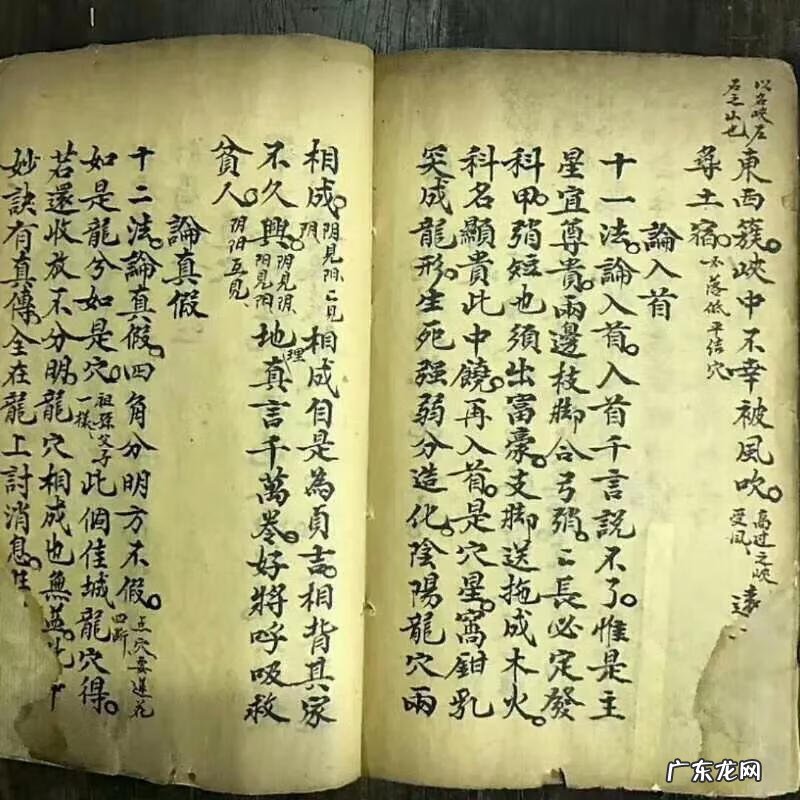 以名峽左
右之山也
東西簇。峽中不幸被風吹。高過之峽
受風、
尋土宿。不落低平結穴
論入首
十一法。論入首。入首千言說不了。惟是主
星宜尊貴。兩邊枝脚合弓弰。弰長必定發
科甲。弰短也須出富豪。支脚送拖成木火。
科名顯貴此中饒。再入首。是穴星。窩鉗乳
突成龍形。生死强弱分造化。陰陽龍穴兩
相成。阴見阳、阳見
阴 相成自是為貞吉。相背其家
不久興。阴見阴、
阳見阳 地理真言千萬卷。好將呼吸救
貧人。阴阳
互見、
論真假
十二法。論真假。四角分明方不假。点穴要蓮花
四斷、
如是龍兮如是穴。祖孫父子
一樣、此個佳城龍穴得。
若還收放不分明。龍穴相成也無益。
妙訣有真傳。全在龍上討消息。
广东龙网